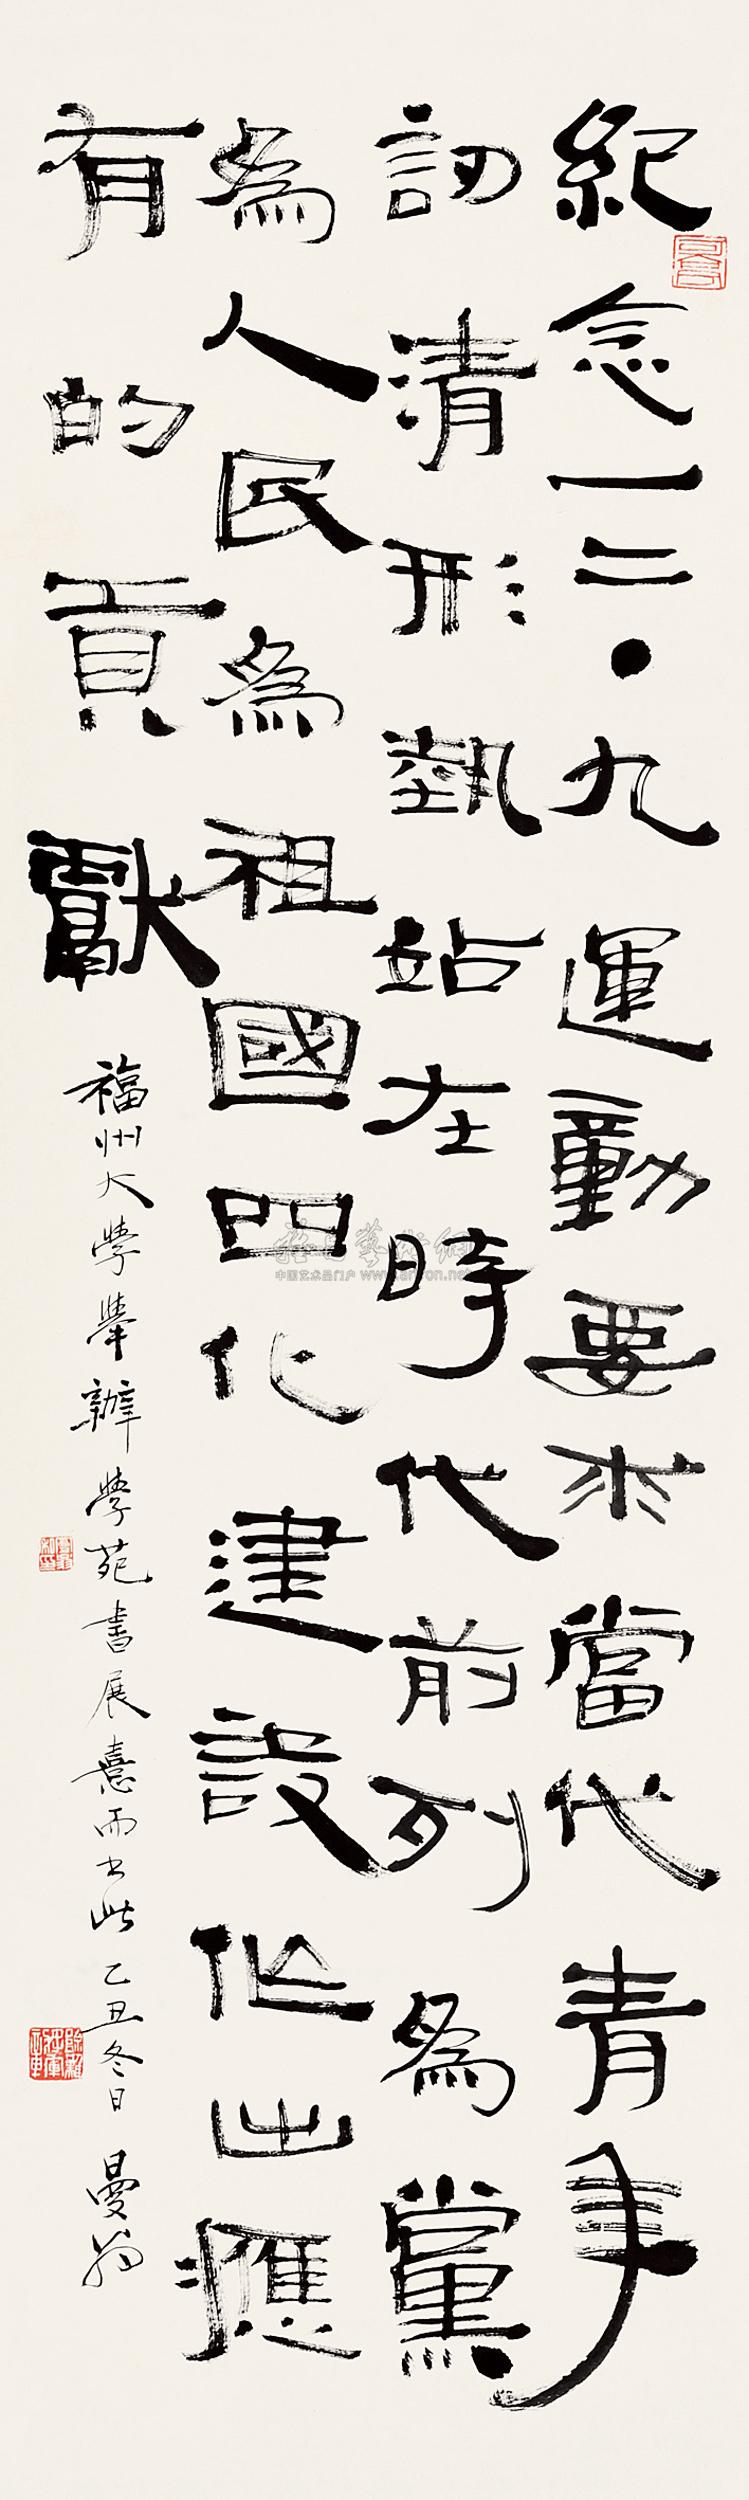 紀念一二·九運動要求當代青年
認清形勢站在時代前列為黨
為人民為祖國四化建設作出應
有的貢獻
福州大學舉辦學苑書展憙而書此乙丑冬日 曼翁
中国艺术品门户 www.artron.net